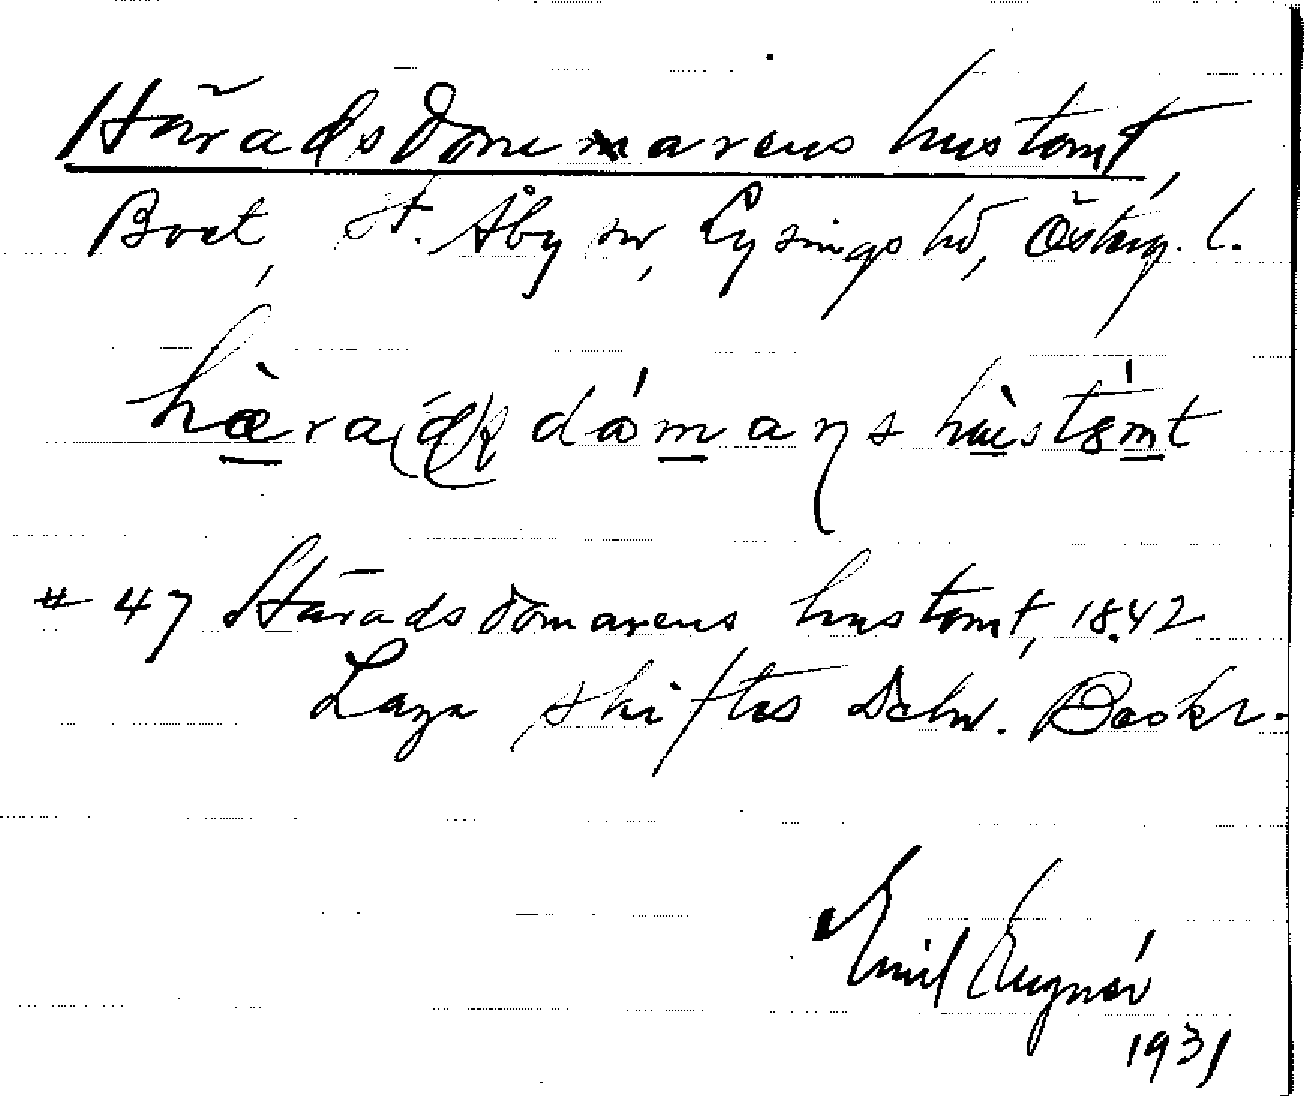 Häradsdomarens hustomt,
Boet, St. Åby sn, Lysings hd, Österg. l.
hæ̀ra(d)k dómaṇs hùstómt
# 47 Häradsdomarens hustomt, 1842
Laga skiftes Deln. Beskr.
Emil
1931